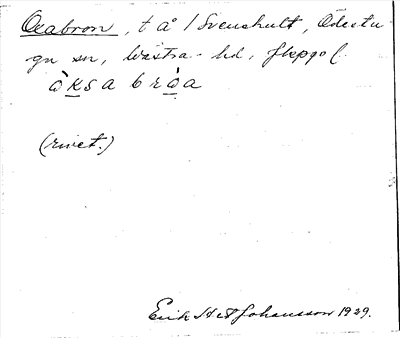 Oxabron, t å / Svenshult, Ödestu-
gu sn, Västra hd, Jkpgs l.
òksa bròa
(rivet.)
Erik H:t Johansson 1929.